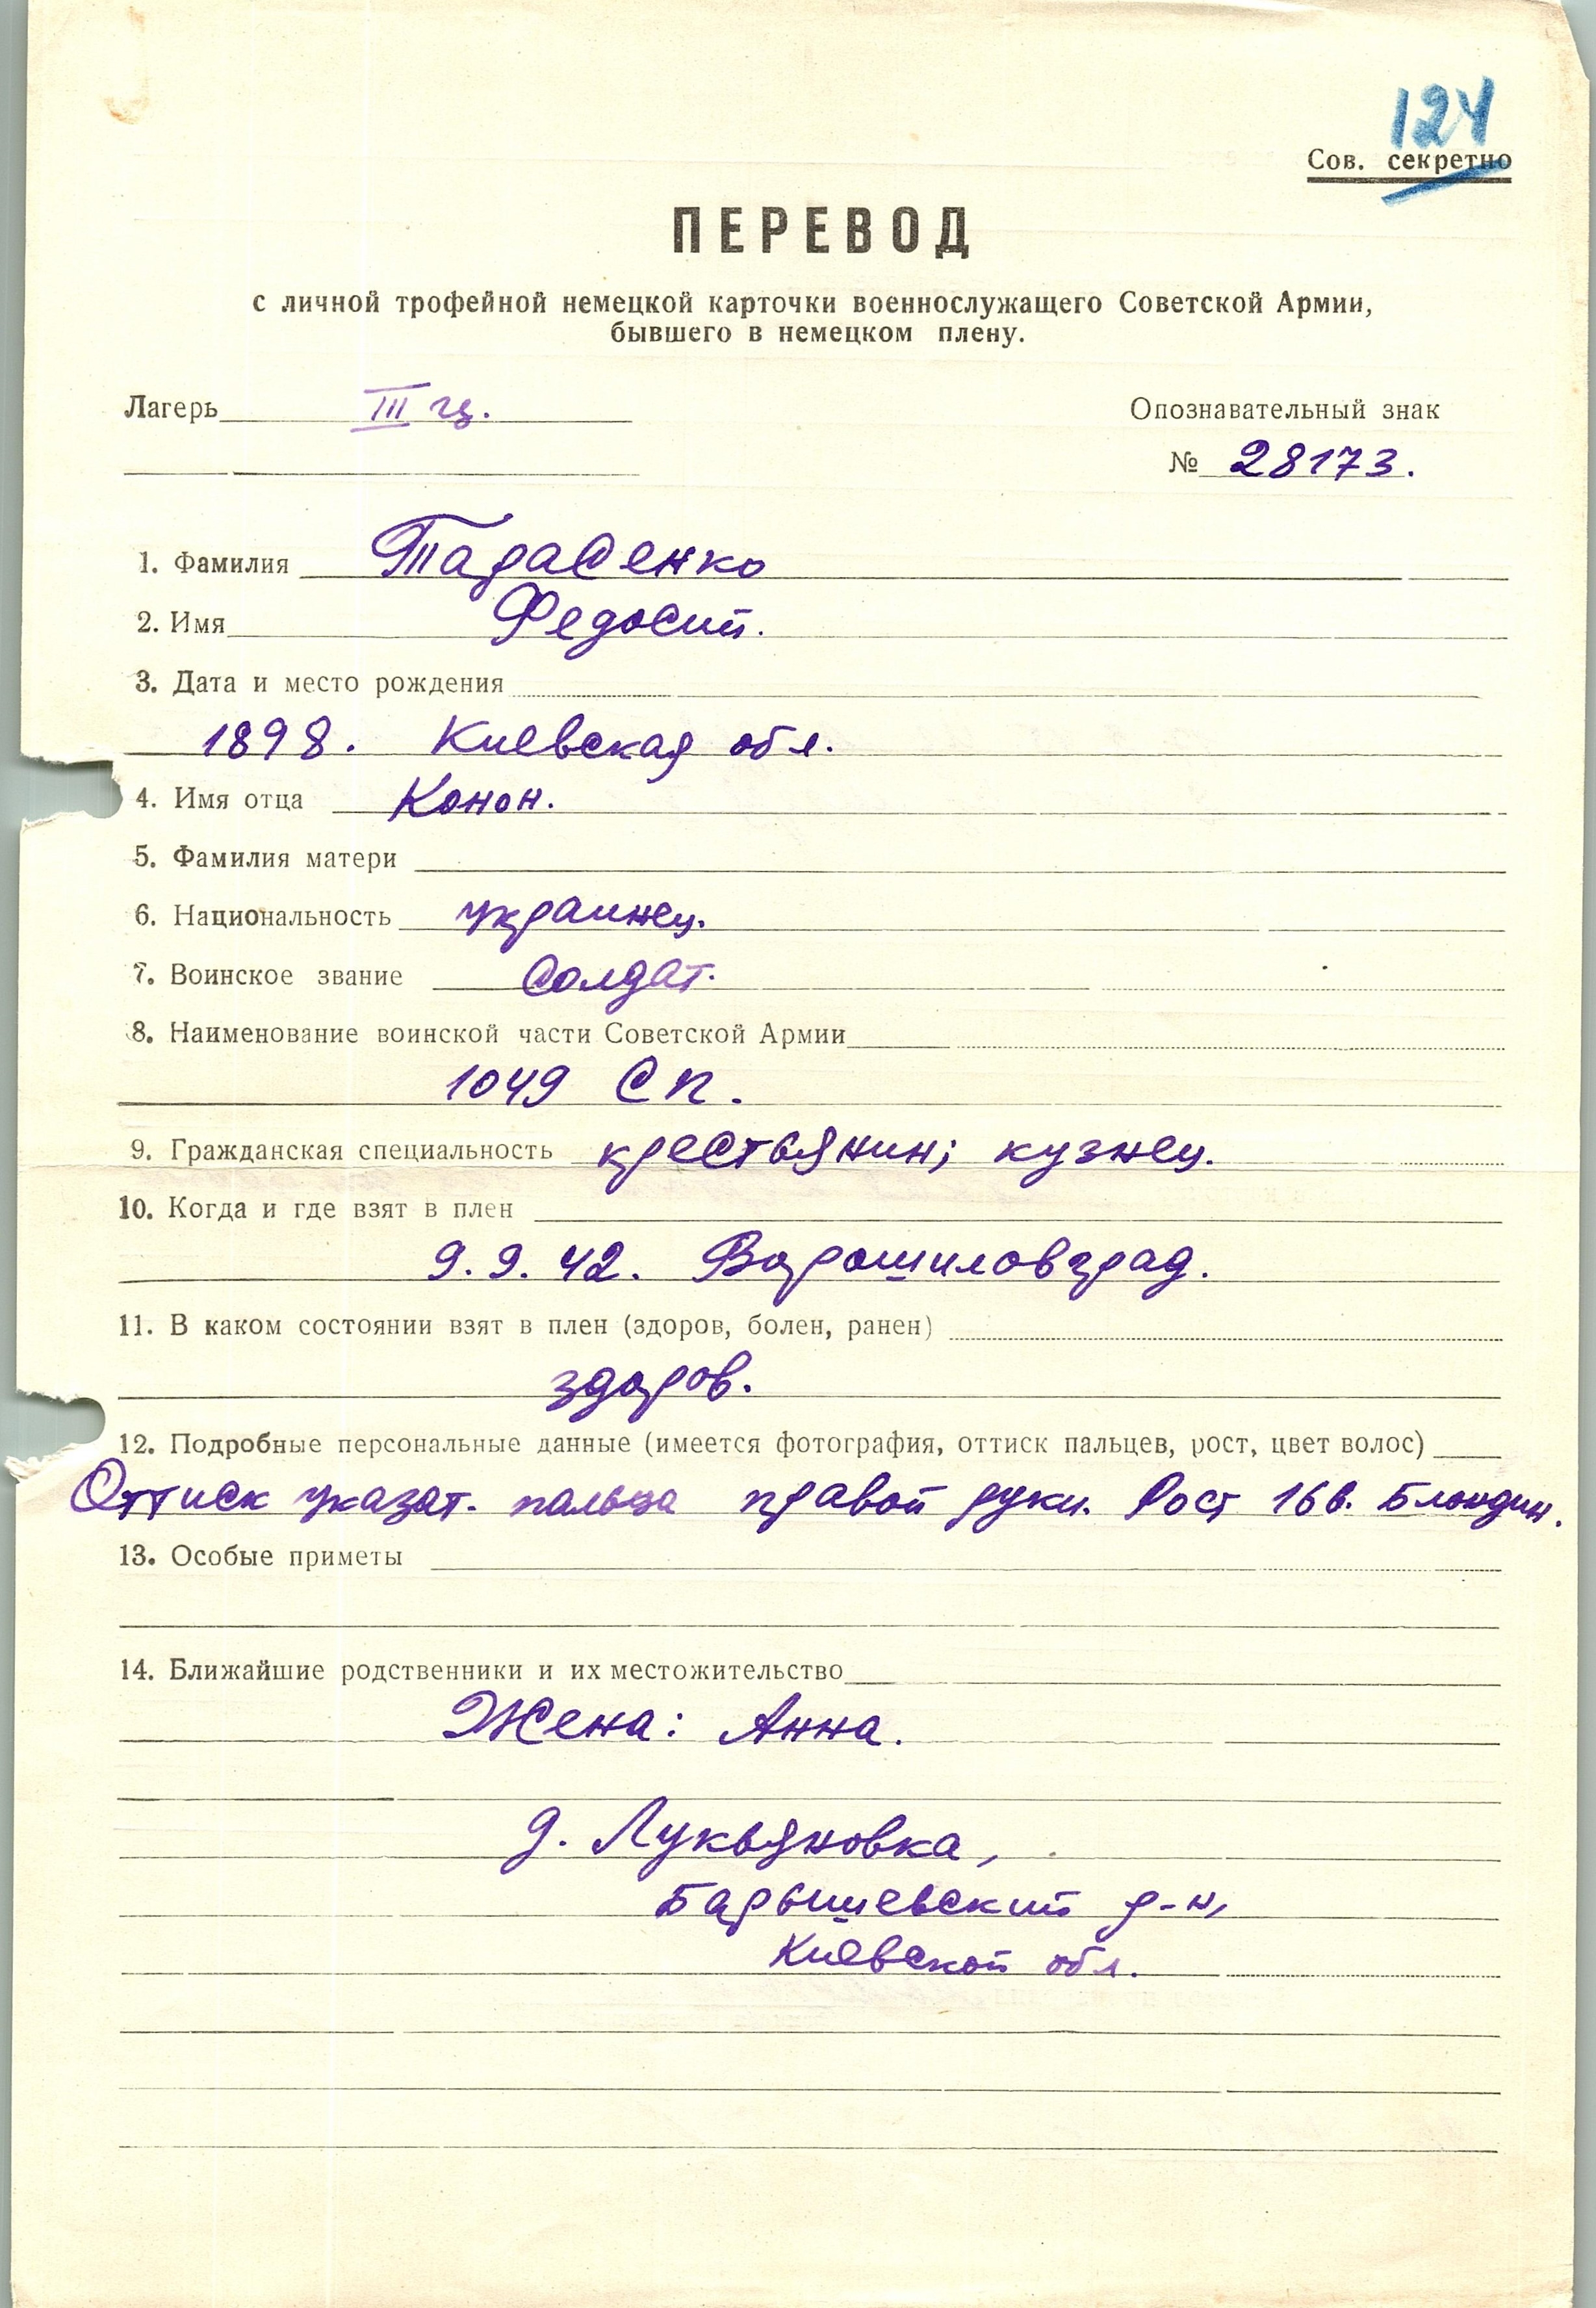 124
Сов. секретно
ПЕРЕВОД
с личной трофейной немецкой карточки военнослужащего Советской Армии,
бывшего в немецком плену.
Лагерь III гц. Опознавательный знак
№ 28173.
1. Фамилия Тарасенко
2. Имя Федосий.
3. Дата и место рождения
1898. Киевская обл.
4. Имя отца Конон.
5. Фамилия матери
6. Национальность украинец.
7. Воинское звание Солдат.
8. Наименование воинской части Советской Армии
1049 СП.
9. Гражданская специальность крестьянин; кузнец.
10. Когда и где взят в плен
9.9.42. Ворошиловград.
11. В каком состоянии взят в плен (здоров, болен, ранен)
здоров.
12. Подробные персональные данные (имеется фотография, оттиск пальцев, рост, цвет волос)
Оттиск указат. пальца правой руки. Рост 166. Блондин.
13. Особые приметы
14. Ближайшие родственники и их местожительство
Жена: Анна.
д. Лукьяновка,
Барышевский р-н,
Киевской обл.